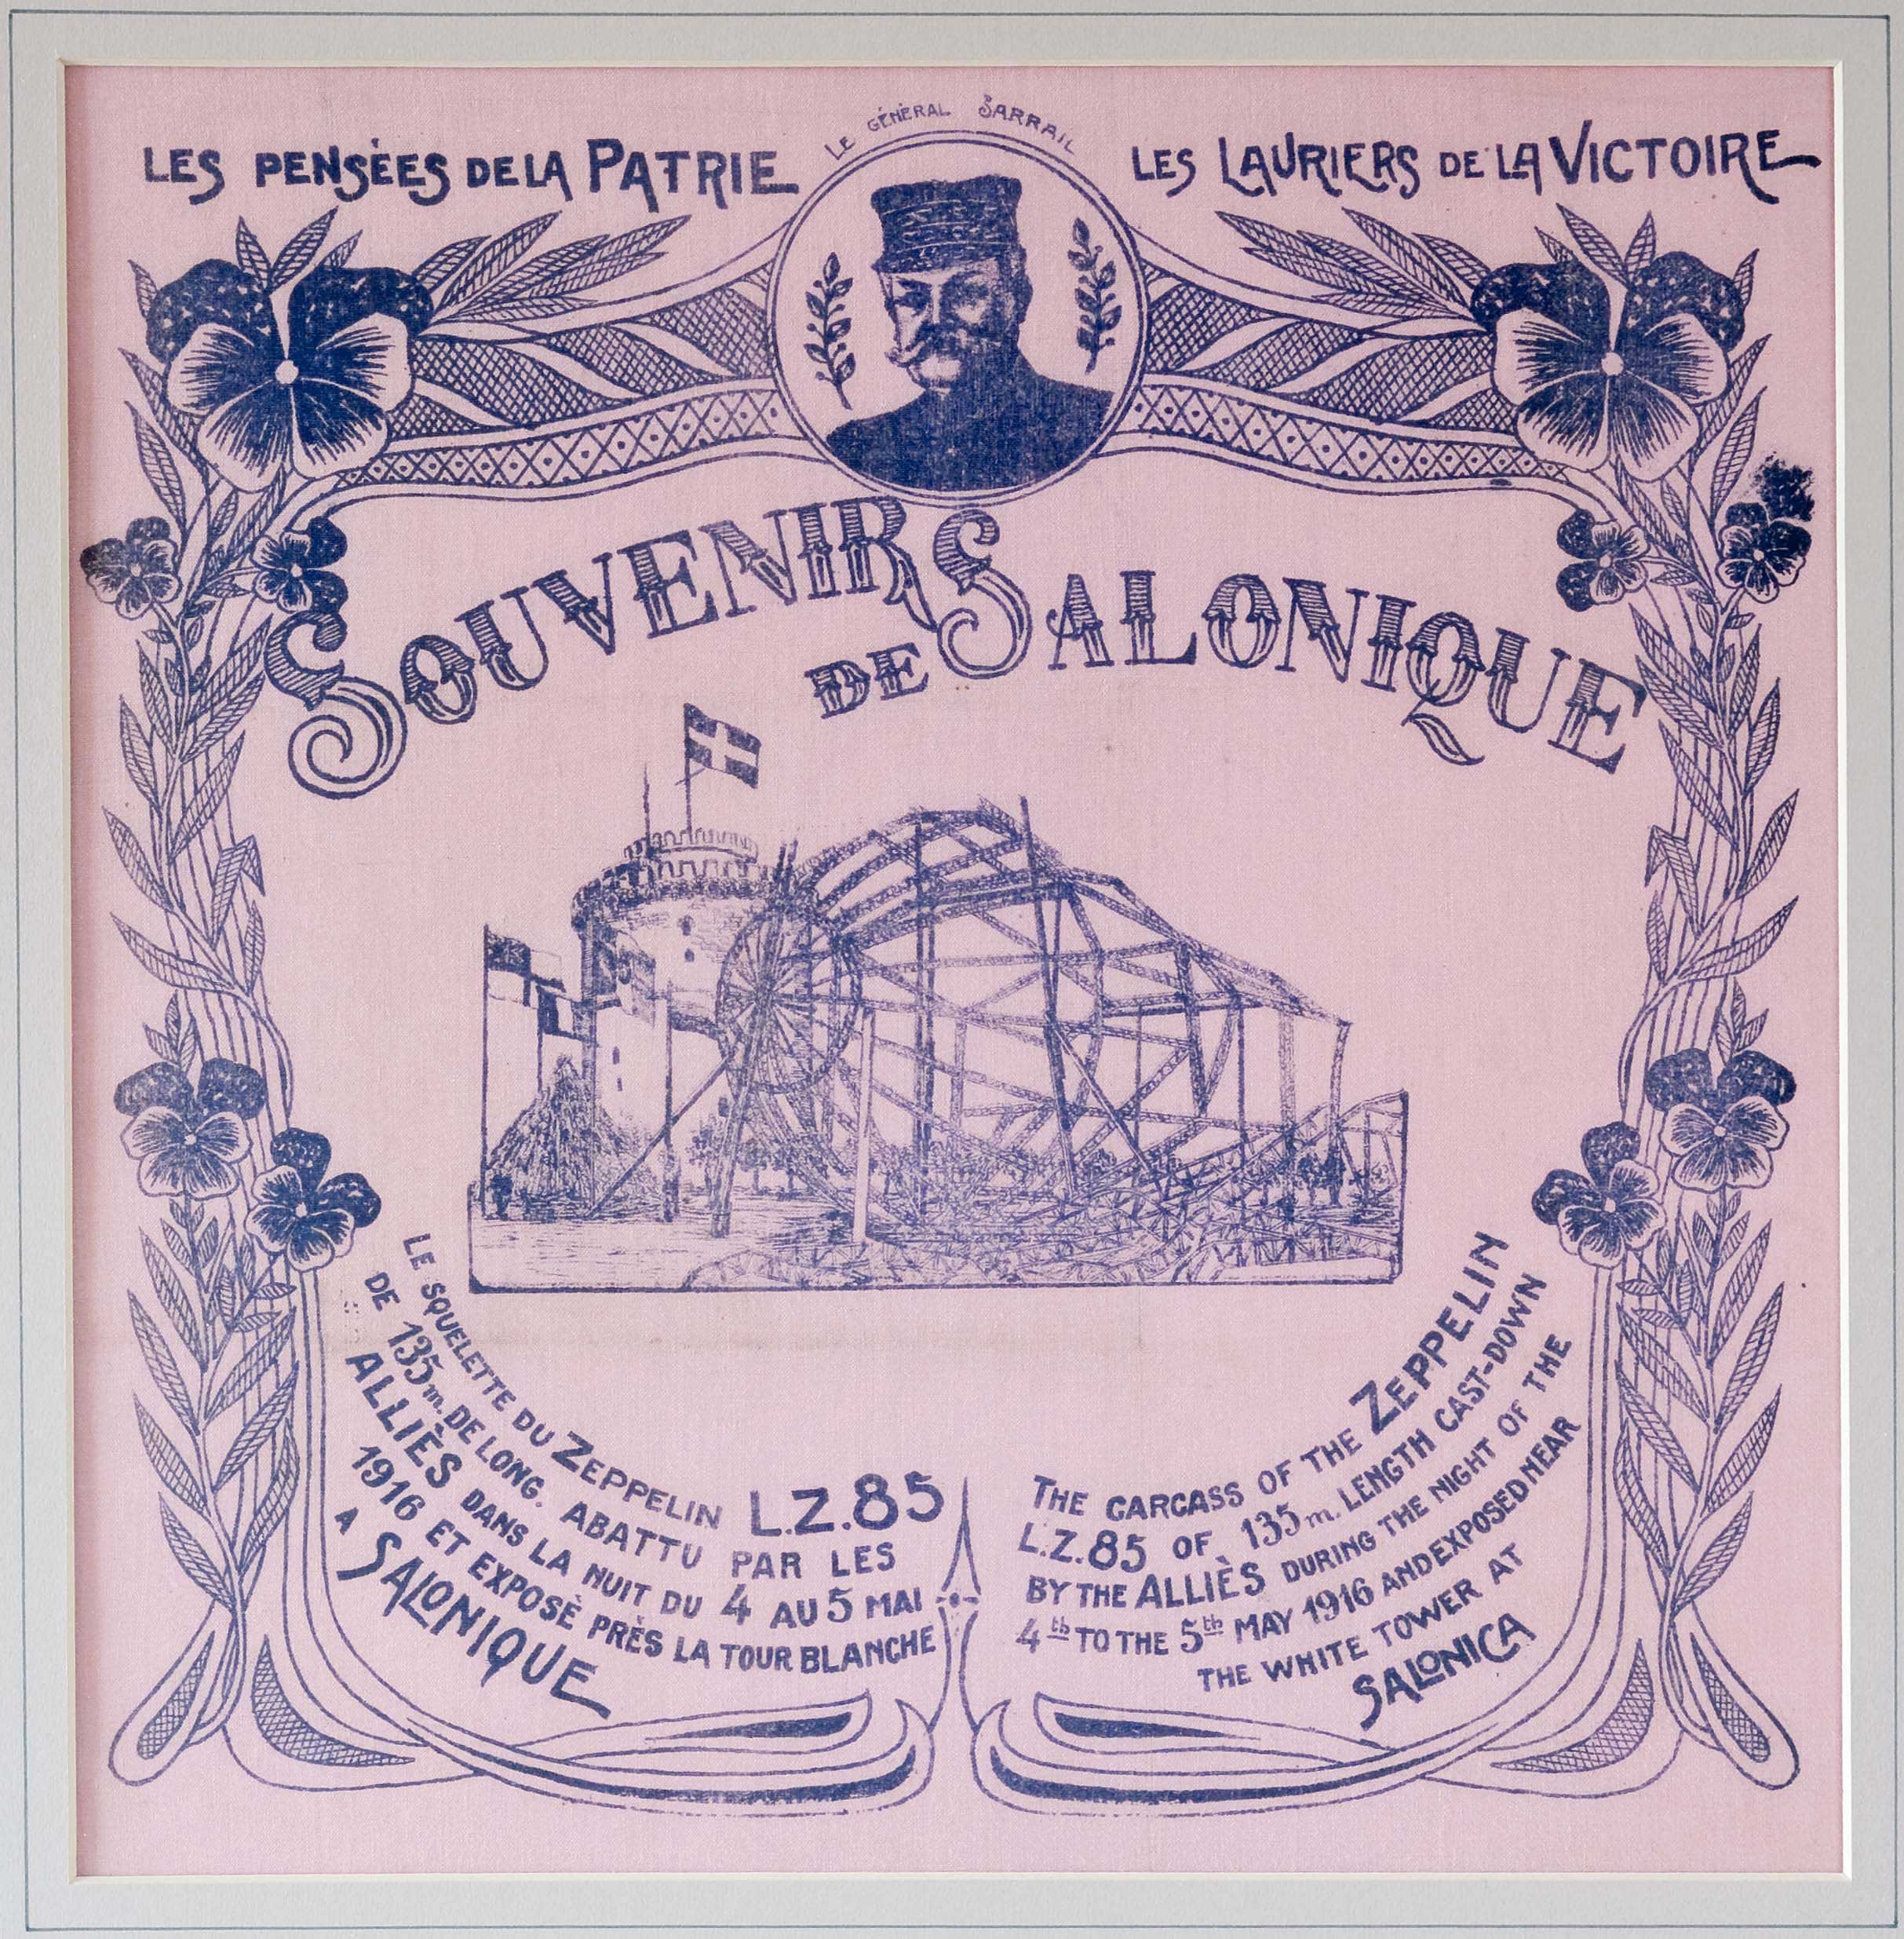 LE GÉNÉRAL SARRAIL
LES PENSÈES DE LA PATRIE
LES LAURIERS DE LA VICTOIRE
SOUVENIR DE SALONIQUE
LE SQUELETTE DU ZEPPELIN L.Z.85
DE 135m. DE LONG. ABATTU PAR LES
ALLIÈS DANS LA NUIT DU 4 AU 5 MAI
1916 ET EXPOSÈ PRÈS LA TOUR BLANCHE
A SALONIQUE
THE CARCASS OF THE ZEPPELIN
L.Z.85 OF 135m. LENGTH CAST-DOWN
BY THE ALLIÈS DURING THE NIGHT OF THE
4th TO THE 5th MAY 1916 AND EXPOSED NEAR
THE WHITE TOWER AT
SALONICA